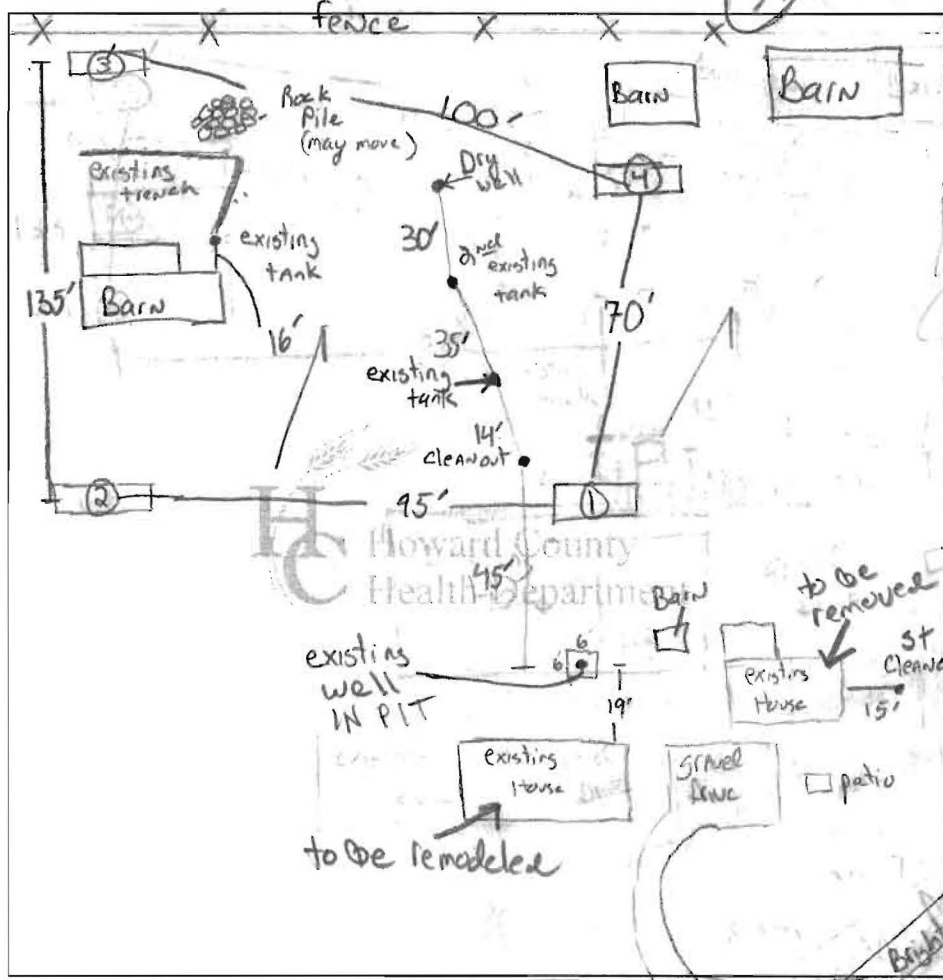 fence
3
Rock
Pile
(may move)
100'
Barn
Barn
existing
trench
Dry
well
4
existing
tank
30'
2nd existing
tank
135'
Barn
16'
70'
35'
existing
tank
14'
cleanout
2
95'
1
HC Howard County
Health Department
45'
Barn
to be
removed
existing
well
IN PIT
6'
6'
19'
existing
House
St
15'
existing
House
gravel
Drive
patio
to be remodeled